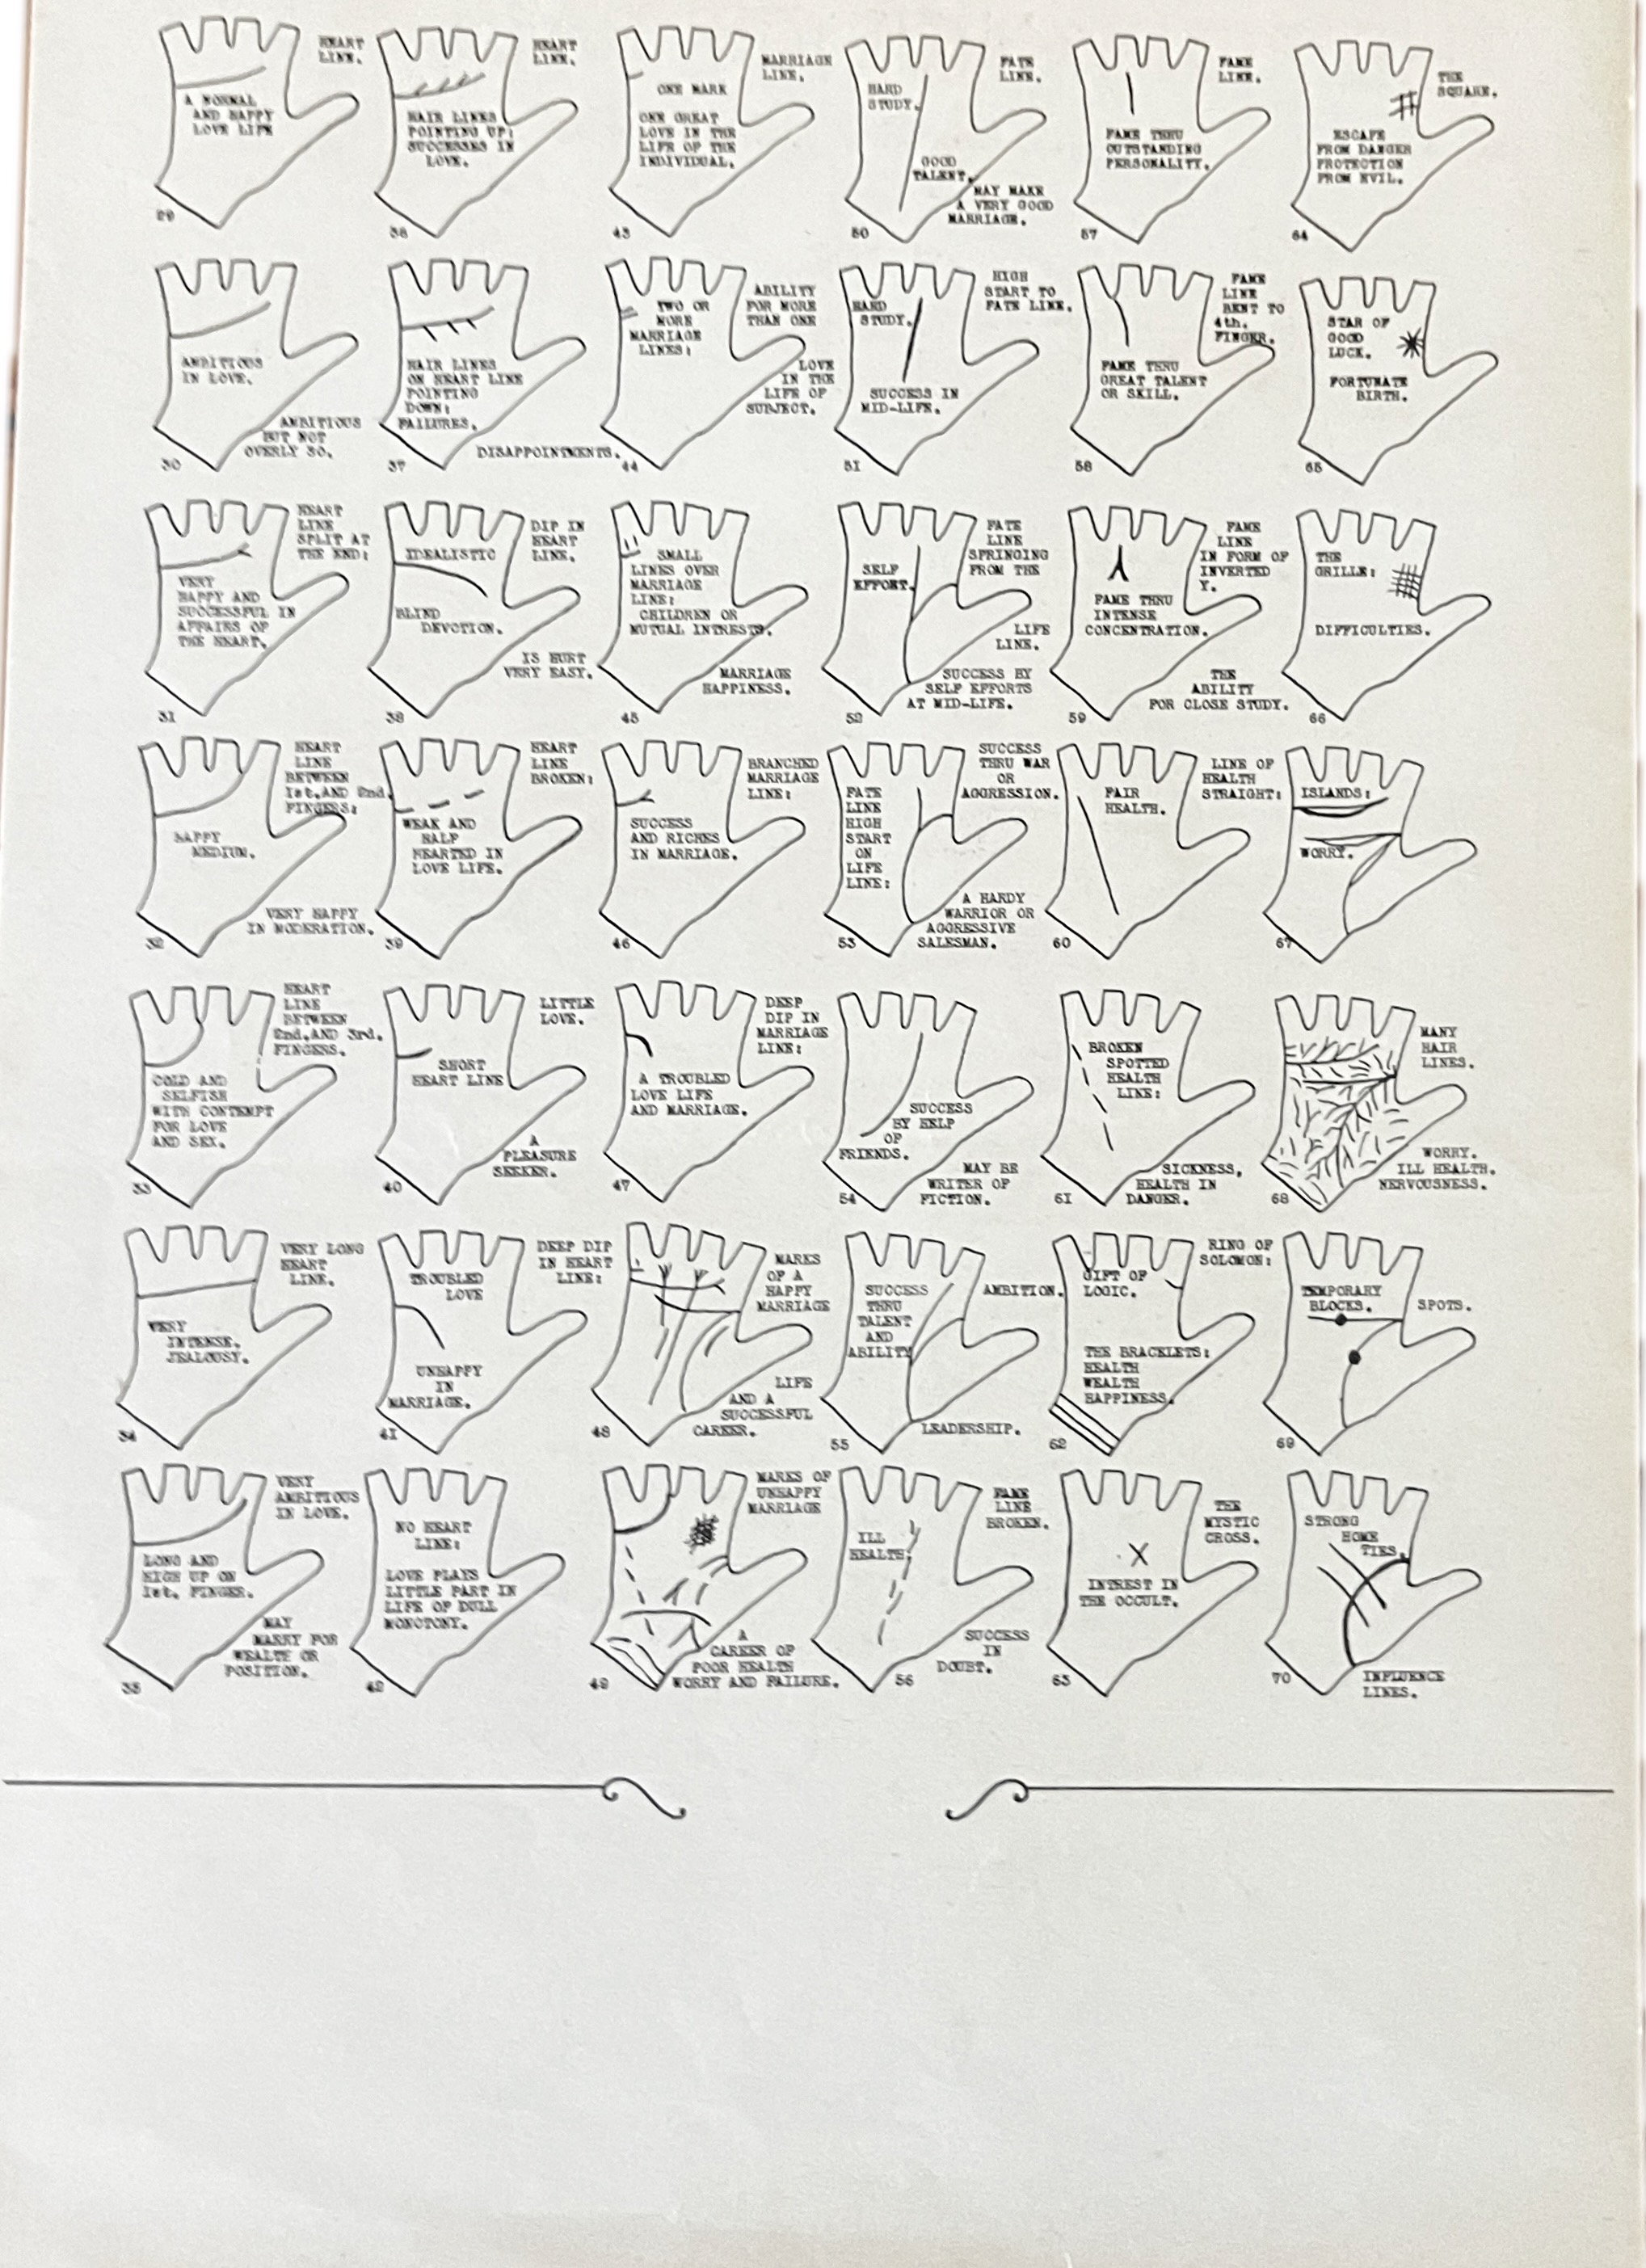 HEART
LINE.
A NORMAL
AND HAPPY
LOVE LIFE
29
AMBITIOUS
IN LOVE.
AMBITIOUS
BUT NOT
OVERLY SO.
30
HEART
LINE
SPLIT AT
THE END:
VERY
HAPPY AND
SUCCESSFUL IN
AFFAIRS OF
THE HEART.
31
HEART
LINE
BETWEEN
1st.AND 2nd.
FINGERS:
HAPPY
MEDIUM.
VERY HAPPY
IN MODERATION.
32
HEART
LINE
BETWEEN
2nd.AND 3rd.
FINGERS.
COLD AND
SELFISH
WITH CONTEMPT
FOR LOVE
AND SEX.
33
VERY LONG
HEART
LINE.
VERY
INTENSE.
JEALOUSY.
34
VERY
AMBITIOUS
IN LOVE.
LONG AND
HIGH UP ON
1st. FINGER.
MAY
MARRY FOR
WEALTH OR
POSITION.
35
HEART
LINE.
HAIR LINES
POINTING UP:
SUCCESSES IN
LOVE.
36
HAIR LINES
ON HEART LINE
POINTING
DOWN:
FAILURES.
DISAPPOINTMENTS.
37
DIP IN
HEART
LINE.
IDEALISTIC
BLIND
DEVOTION.
IS HURT
VERY EASY.
38
HEART
LINE
BROKEN:
WEAK AND
HALF
HEARTED IN
LOVE LIFE.
39
LITTLE
LOVE.
SHORT
HEART LINE
A
PLEASURE
SEEKER.
40
DEEP DIP
IN HEART
LINE:
TROUBLED
LOVE
UNHAPPY
IN
MARRIAGE.
41
NO HEART
LINE:
LOVE PLAYS
LITTLE PART IN
LIFE OF DULL
MONOTONY.
42
MARRIAGE
LINE.
ONE MARK
ONE GREAT
LOVE IN THE
LIFE OF THE
INDIVIDUAL.
43
TWO OR
MORE
MARRIAGE
LINES:
ABILITY
FOR MORE
THAN ONE
LOVE
IN THE
LIFE OF
SUBJECT.
44
SMALL
LINES OVER
MARRIAGE
LINE:
CHILDREN OR
MUTUAL INTRESTS.
MARRIAGE
HAPPINESS.
45
BRANCHED
MARRIAGE
LINE:
SUCCESS
AND RICHES
IN MARRIAGE.
46
DEEP
DIP IN
MARRIAGE
LINE:
A TROUBLED
LOVE LIFE
AND MARRIAGE.
47
MARKS
OF A
HAPPY
MARRIAGE
LIFE
AND A
SUCCESSFUL
CAREER.
48
MARKS OF
UNHAPPY
MARRIAGE
A
CAREER OF
POOR HEALTH
WORRY AND FAILURE.
49
FATE
LINE.
HARD
STUDY.
GOOD
TALENT.
MAY MAKE
A VERY GOOD
MARRIAGE.
50
HIGH
START TO
FATE LINE.
HARD
STUDY.
SUCCESS IN
MID-LIFE.
51
FATE
LINE
SPRINGING
FROM THE
LIFE
LINE.
SELF
EFFORT.
SUCCESS BY
SELF EFFORTS
AT MID-LIFE.
52
SUCCESS
THRU WAR
OR
AGGRESSION.
FATE
LINE
HIGH
START
ON
LIFE
LINE:
A HARDY
WARRIOR OR
AGGRESSIVE
SALESMAN.
53
SUCCESS
BY HELP
OF
FRIENDS.
MAY BE
WRITER OF
FICTION.
54
AMBITION.
SUCCESS
THRU
TALENT
AND
ABILITY
LEADERSHIP.
55
FAME
LINE
BROKEN.
ILL
HEALTH.
SUCCESS
IN
DOUBT.
56
FAME
LINE.
FAME THRU
OUTSTANDING
PERSONALITY.
57
FAME
LINE
BENT TO
4th.
FINGER.
FAME THRU
GREAT TALENT
OR SKILL.
58
FAME
LINE
IN FORM OF
INVERTED
Y.
FAME THRU
INTENSE
CONCENTRATION.
THE
ABILITY
FOR CLOSE STUDY.
59
LINE OF
HEALTH
STRAIGHT:
FAIR
HEALTH.
60
BROKEN
SPOTTED
HEALTH
LINE:
SICKNESS,
HEALTH IN
DANGER.
61
RING OF
SOLOMON:
GIFT OF
LOGIC.
THE BRACELETS:
HEALTH
WEALTH
HAPPINESS.
62
THE
MYSTIC
CROSS.
INTREST IN
THE OCCULT.
63
THE
SQUARE.
ESCAPE
FROM DANGER
PROTECTION
FROM EVIL.
64
STAR OF
GOOD
LUCK.
FORTUNATE
BIRTH.
65
THE
GRILLE:
DIFFICULTIES.
66
ISLANDS:
WORRY.
67
MANY
HAIR
LINES.
WORRY.
ILL HEALTH.
NERVOUSNESS.
68
TEMPORARY
BLOCKS.
SPOTS.
69
STRONG
HOME
TIES.
INFLUENCE
LINES.
70